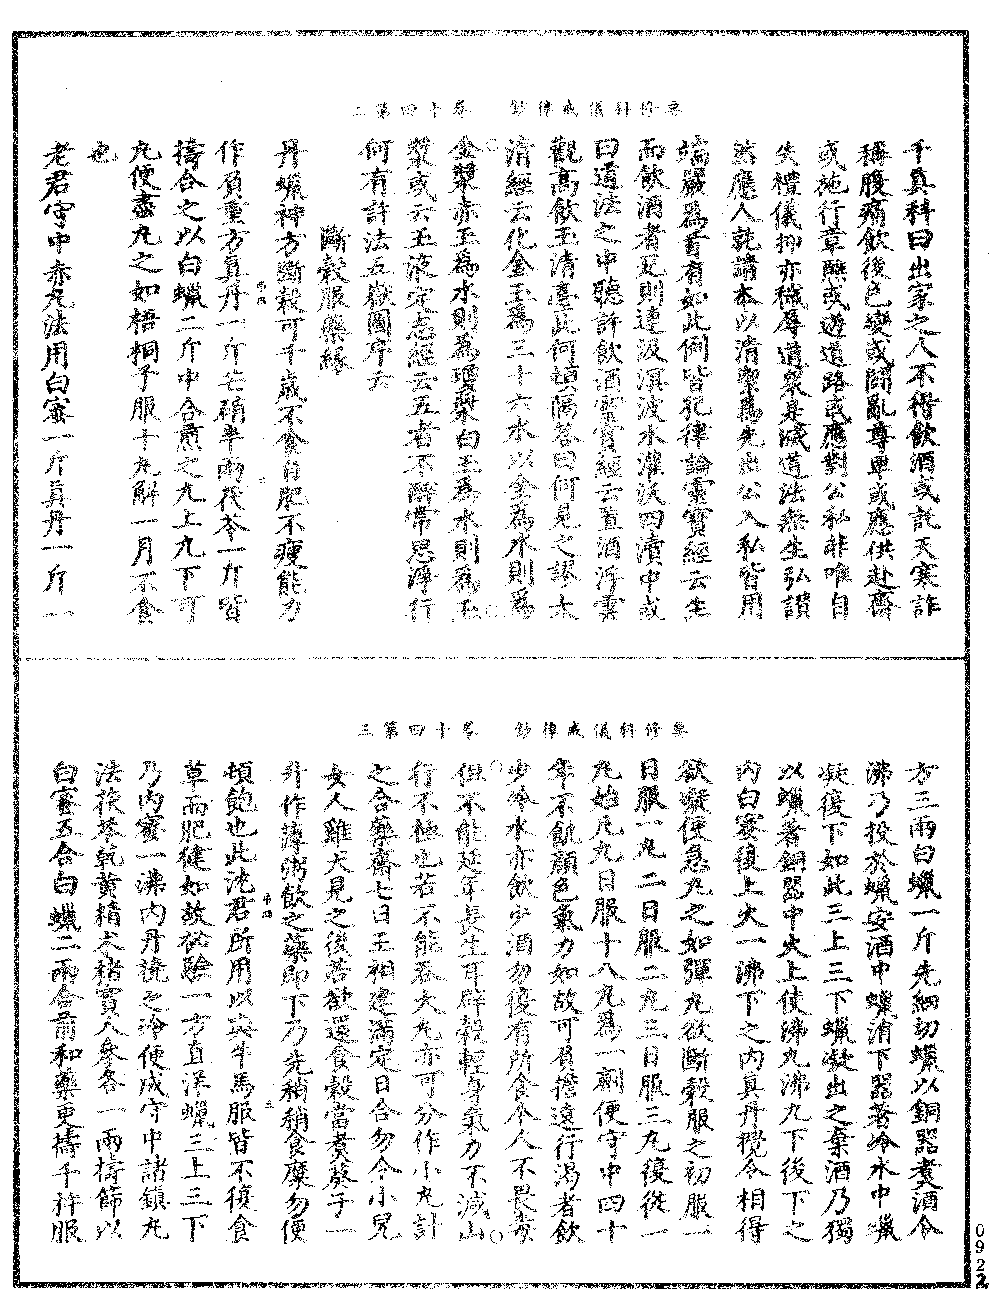 要修科儀戒律鈔　卷十四第二
千真科曰出家之人不得飲酒或託天寒詐
稱腹痛飲後色變或鬭亂尊卑或應供赴齋
或施行章醮或遊道路或應對公私非唯自
失禮儀抑亦穢辱道衆臭滅道法無生弘讃
若應人乾請本以清潔爲先出公入私皆用
端嚴爲首有如此例皆犯律論靈寶經云生
而飲酒者死則連汲溟波水灌沃四瀆中或
曰道法之中聽許飲酒靈寶經云置酒浮雲
觀高飲玉清臺此何頓隔答曰何見之謬太
清經云化金玉爲三十六水以金爲水則爲
金漿亦玉爲水則爲瓊漿白玉爲水則爲玉
漿或云玉液定志經云五者不醉常思淨行
何有許法五嶽圖序云
斷穀服藥緣
丹蠟神方斷穀可千歲不食自肥不瘦能力
作負重方真丹一斤芒硝半兩茯苓一斤皆
擣合之以白蠟二斤中合煎之九上九下可
丸便盡丸之如梧桐子服十丸解一月不食
也
老君守中赤丸法用白蜜一斤真丹一斤一
要修科儀戒律鈔　卷十四第三
方三兩白蠟一斤先細切蠟以銅器煮酒令
沸乃投於蠟安酒中蠟消下器著冷水中蠟
凝復下如此三上三下蠟凝出之棄酒乃獨
以蠟著銅器中火上使沸九沸九下後下之
內白蜜復上火一沸下之內真丹攪令相得
欲凝便急丸之如彈丸欲斷穀服之初服一
日服一丸二日服二丸三日服三丸復從一
丸始凡九日服十八丸爲一劑便守中四十
年不飢顏色氣力如故可負擔遠行渴者飲
少冷水亦飲少酒勿復有所食令人不畏毒
但不能延年長生耳辟穀輕身氣力不減山
行不極也若不能吞大丸亦可分作小丸計
之合藥齋七日王相建滿定日合勿令小兒
女人雞犬見之後若欲還食穀當煮葵子一
升作薄粥飲之藥即下乃先稍稍食糜勿便
頓飽也此沈君所用以與牛馬服皆不復食
草而肥健如故祕驗一方直洋蠟三上三下
乃內蜜一沸內丹撓之冷便成守中諸鎮丸
法茯苓乾黃精朮楮實人參各一兩擣篩以
白蜜五合白蠟二兩合煎和藥更擣千杵服
0922